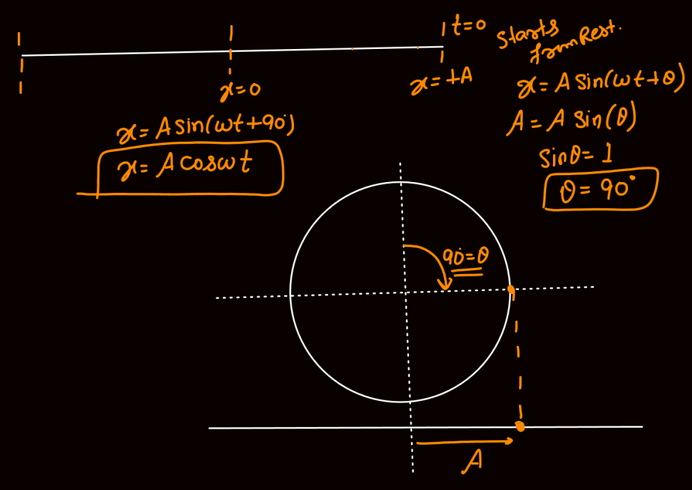 t=0
Starts from Rest.
x=0
x=+A
x=Asin(ωt+θ)
A=Asin(θ)
sinθ=1
θ=90°
x=Asin(ωt+90)
x=Acosωt
90=θ
A